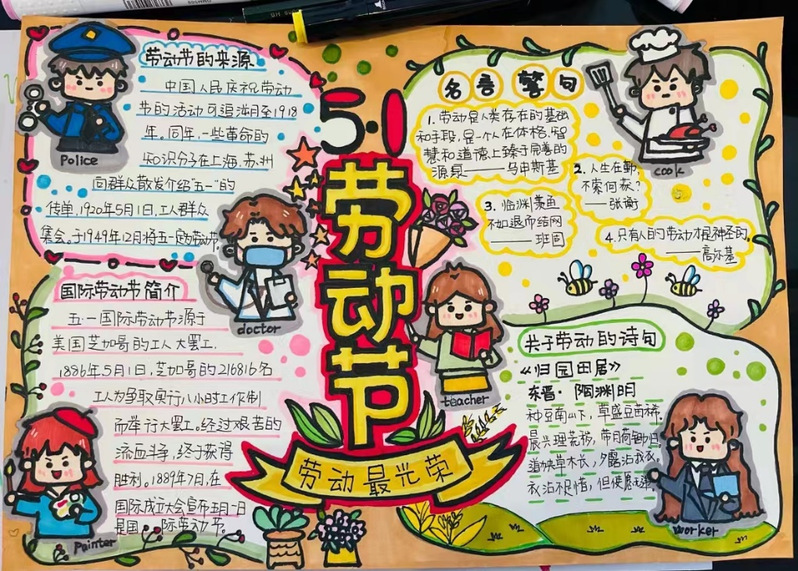 劳动节的来源
中国人民庆祝劳动
节的活动可追溯至1918
年。同年,一些革命的
知识分子在上海、苏州
向群众散发介绍"五一"的
传单,1920年5月1日,工人群众
集会。于1949年12月将五一定为劳动节
Police
国际劳动节简介
五一国际劳动节源于
美国芝加哥的工人大罢工.
1886年5月1日,芝加哥的216816名
工人为争取实行八小时工作制
而举行大罢工。经过艰苦的
流血斗争,终于获得
胜利。1889年7月,在
国际成立大会宣布五月一日
是国 际劳动节。
painter
doctor
5·1
劳动节
劳动最光荣
teacher
名言警句
1.劳动是人类存在的基础
和手段,是一个人在体格、智
慧和道德上臻于完善的
源泉——马申斯基
2.人生在勤,
不索何获?
——张衡
3.临渊羡鱼
不如退而结网
——班固
4.只有人的劳动才是神圣的。
——高尔基
cook
关于劳动的诗句
《归园田居》
东晋·陶渊明
种豆南山下,草盛豆苗稀。
晨兴理荒秽,带月荷锄归
道狭草木长,夕露沾我衣。
衣沾不足惜,但使愿无
worker